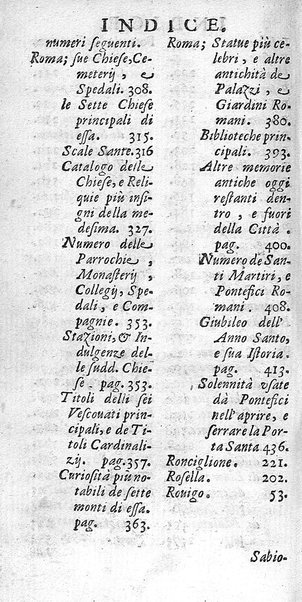 INDICE.
numeri seguenti.
Roma; sue Chiese, Ce-
meterij, e
Spedali. 308.
le Sette Chiese
principali di
essa. 315.
Scale Sante. 316
Catalogo delle
Chiese, e Reli-
quie più insi-
gni della me-
desima. 327.
Numero delle
Parrochie,
Monasterij,
Collegij, Spe-
dali, e Com-
pagnie. 353.
Stazioni, & In-
dulgenze del-
le sudd. Chie-
se. pag. 353.
Titoli delli sei
Vescouati prin-
cipali, e de Ti-
toli Cardinali-
zij. pag. 357.
Curiosità più no-
tabili de sette
monti di essa.
pag. 363.
Roma; Statue più ce-
lebri, e altre
antichità de
Palazzi, e
Giardini Ro-
mani. 380.
Biblioteche prin-
cipali. 393.
Altre memorie
antiche oggi
restanti den-
tro, e fuori
della Città.
pag. 400.
Numero de San-
ti Martiri, e
Pontefici Ro-
mani. 408.
Giubileo dell'
Anno Santo,
e sua Istoria.
pag. 413.
Solennità vsate
dà Pontefici
nell'aprire, e
serrare la Por-
ta Santa 436.
Ronciglione. 221.
Rosella. 202.
Rouigo. 53.
Sabio-